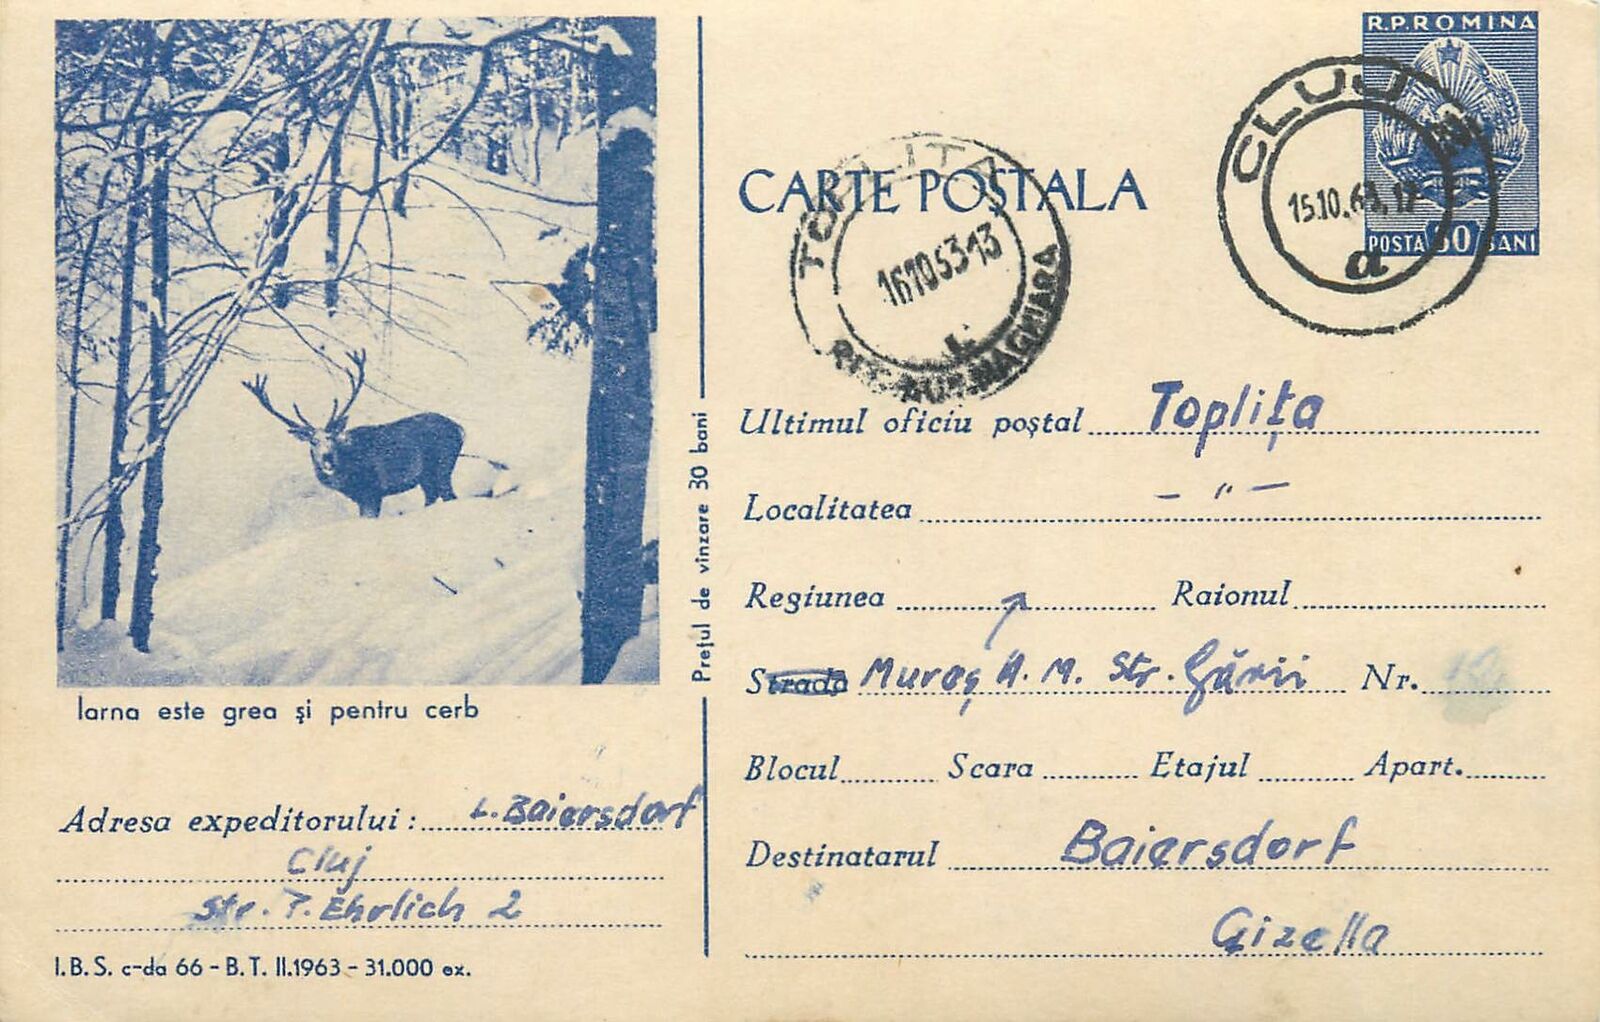 Iarna este grea și pentru cerb
Adresa expeditorului: L. Baiersdorf
Cluj
Str. P. Ehrlich 2
I.B.S. c-da 66 - B.T. II.1963 - 31.000 ex.
Prețul de vînzare 30 bani
R.P.ROMINA
POSTA 30 BANI
CLUJ
15.10.63.17
a
CARTE POSTALA
TOPLITA
16 10 63 13
REG. MUR. MAGHIARA
Ultimul oficiu poștal Toplița
Localitatea - " -
Regiunea Raionul
Strada Mureș A. M. Str. Gării Nr.
Blocul Scara Etajul Apart.
Destinatarul Baiersdorf
Gizella